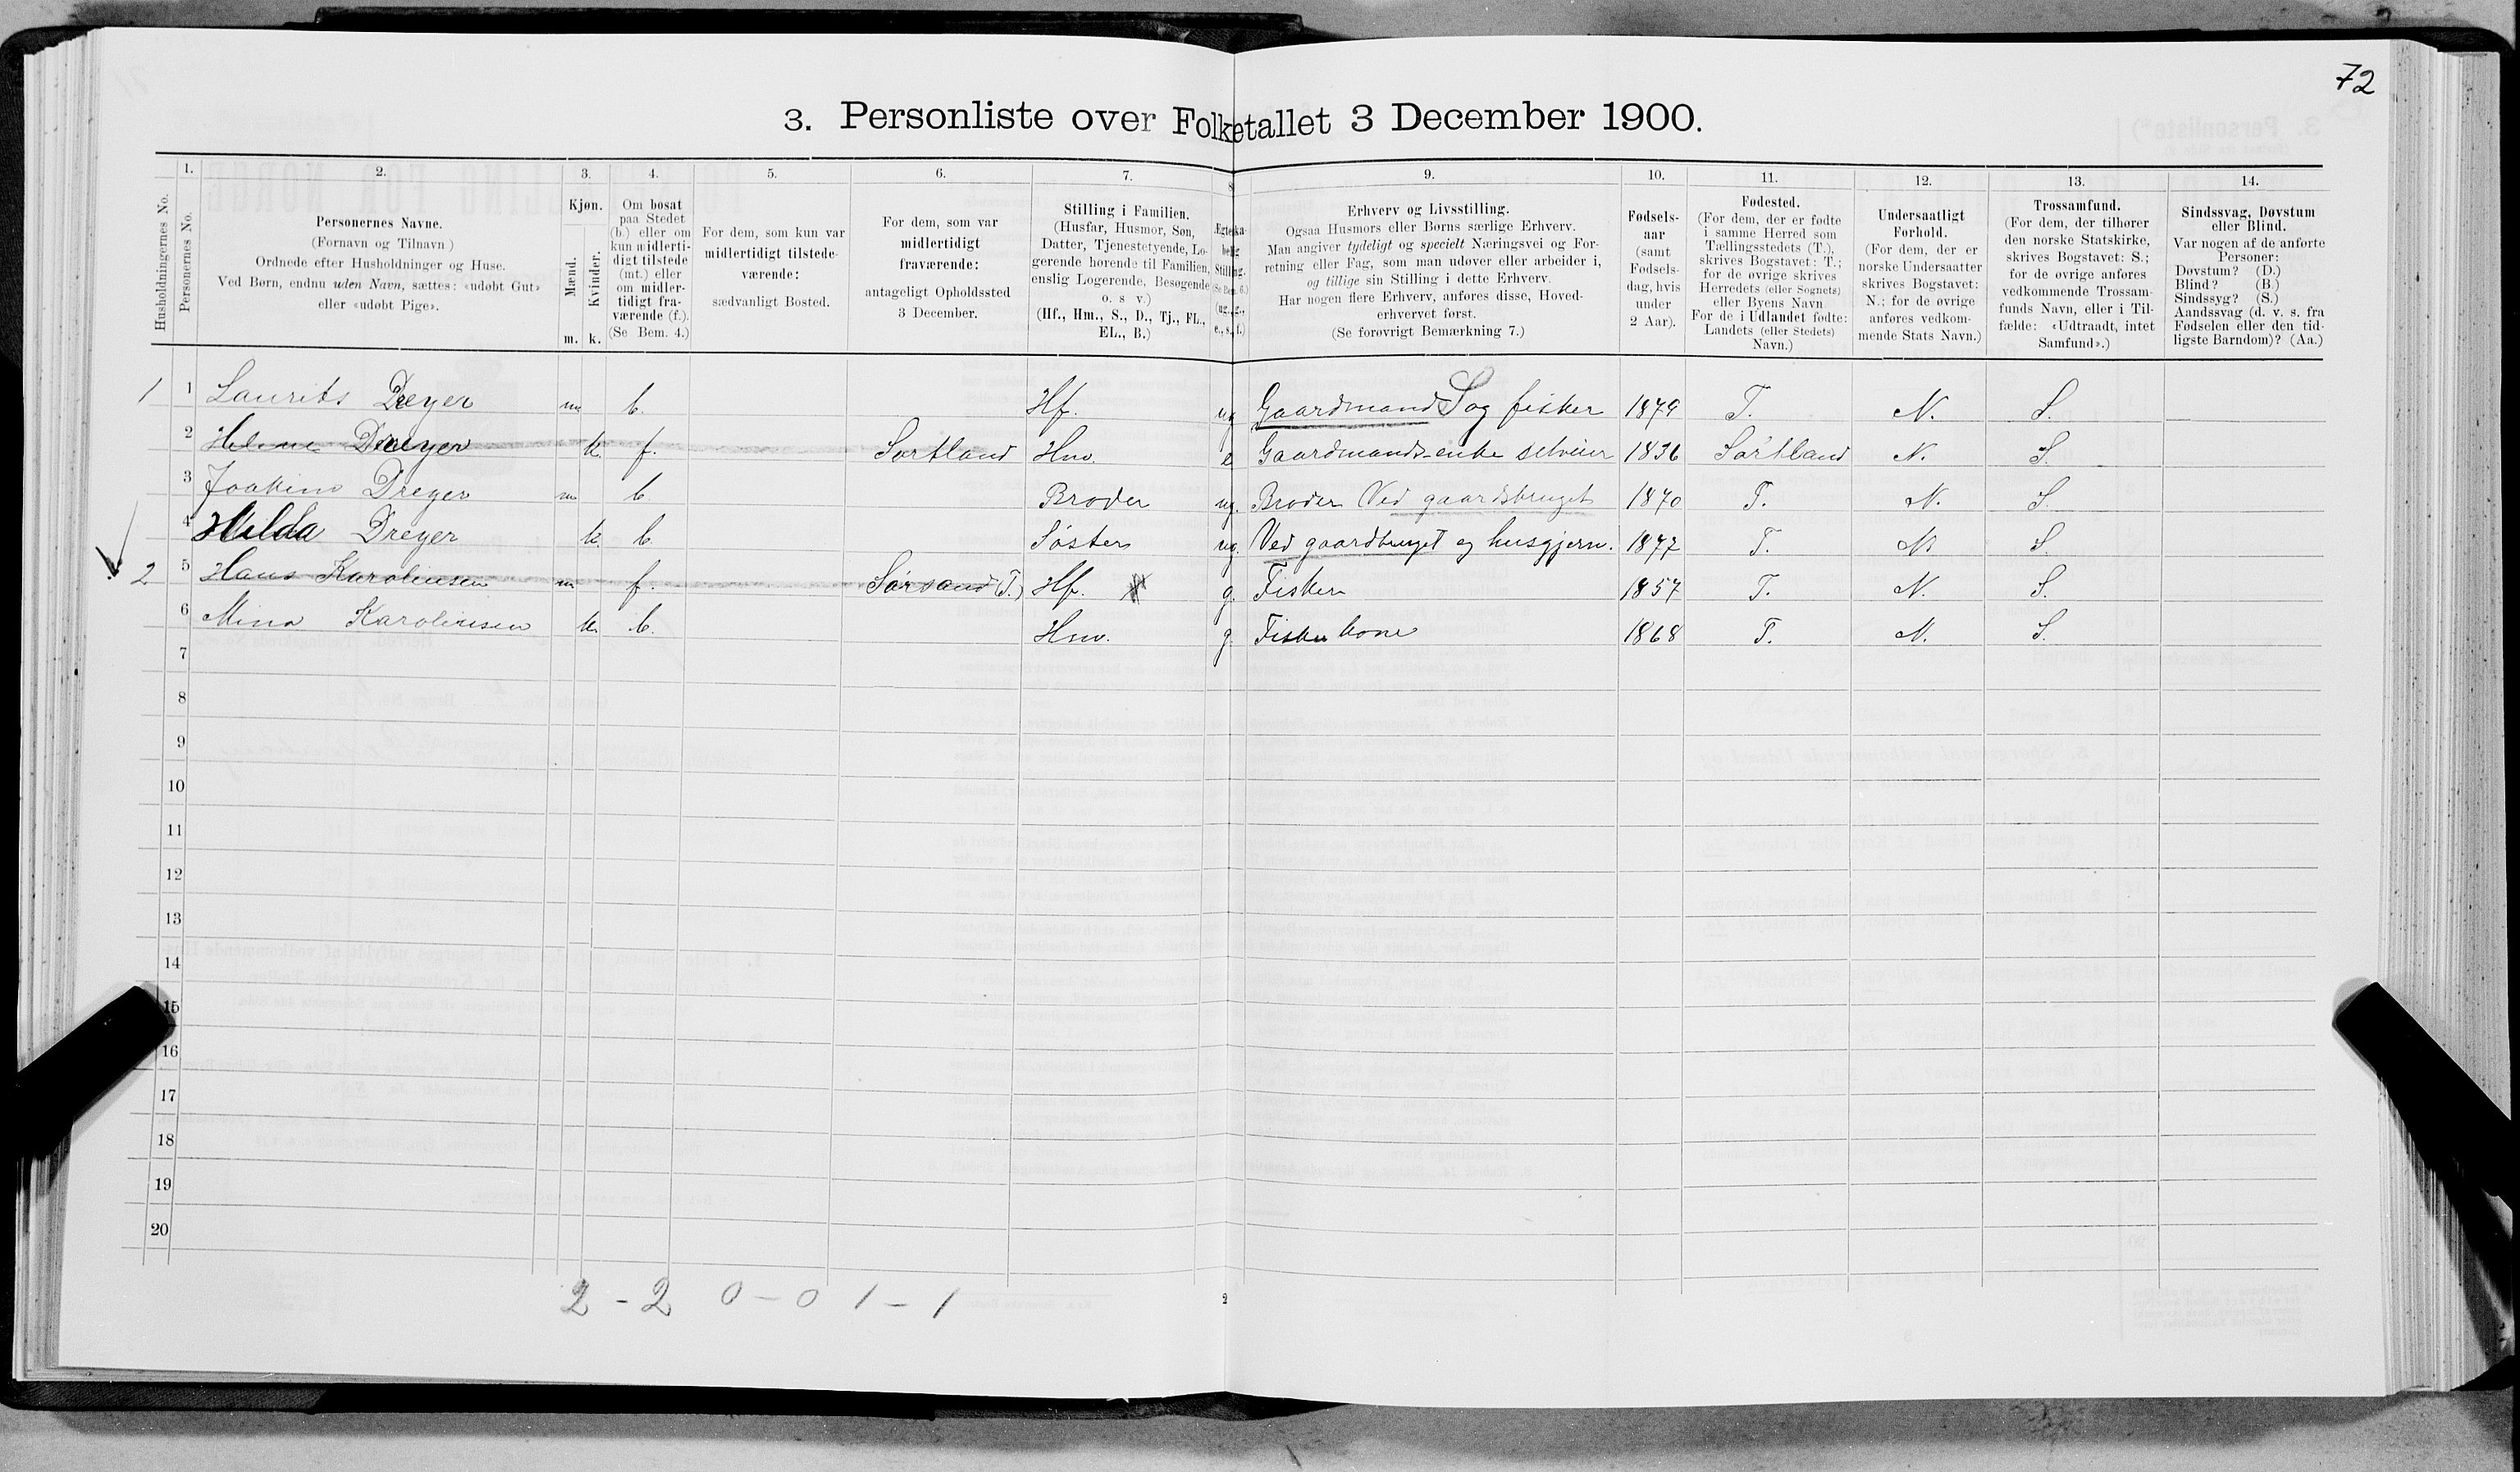 72
3. Personliste over Folketallet 3 December 1900.
1. 2. 3. 4. 5. 6. 7. 8 9. 10. 11. 12. 13. 14.
Husholdningernes No.
Personernes No.
Personernes Navne.
(Fornavn og Tilnavn)
Ordnede efter Husholdninger og Huse.
Ved Børn, endnu uden Navn, sættes: «udøbt Gut»
eller «udøbt Pige».
Kjøn.
Mænd.
Kvinder.
m. k.
Om bosat
paa Stedet
(b.) eller om
kun midlerti-
digt tilstede
(mt.) eller
om midler-
tidigt fra-
værende (f.).
(Se Bem. 4.)
For dem, som kun var
midlertidigt tilstede-
værende:
sædvanligt Bosted.
For dem, som var
midlertidigt
fraværende:
antageligt Opholdssted
3 December.
Stilling i Familien.
(Husfar, Husmor, Søn,
Datter, Tjenestetyende, Lo-
gerende hørende til Familien,
enslig Logerende, Besøgende
o. s v.)
(Hf., Hm., S., D., Tj., FL.,
EL., B.)
Ægteska-
belig
Stilling.
(Se Bem. 6.)
(ug., g.,
e., s., f.)
Erhverv og Livsstilling.
Ogsaa Husmors eller Børns særlige Erhverv.
Man angiver tydeligt og specielt Næringsvei og For-
retning eller Fag, som man udøver eller arbeider i,
og tillige sin Stilling i dette Erhverv.
Har nogen flere Erhverv, anføres disse, Hoved-
erhvervet først.
(Se forøvrigt Bemærkning 7.)
Fødsels-
aar
(samt
Fødsels-
dag, hvis
under
2 Aar).
Fødested.
(For dem, der er fødte
i samme Herred som
Tællingsstedets (T.),
skrives Bogstavet: T.;
for de øvrige skrives
Herredets (eller Sognets)
eller Byens Navn
For de i Udlandet fødte:
Landets (eller Stedets)
Navn.)
Undersaatligt
Forhold.
(For dem, der er
norske Undersaatter
skrives Bogstavet:
N.; for de øvrige
anføres vedkom-
mende Stats Navn.)
Trossamfund.
(For dem, der tilhører
den norske Statskirke,
skrives Bogstavet: S.;
for de øvrige anføres
vedkommende Trossam-
funds Navn, eller i Til-
fælde: «Udtraadt, intet
Samfund».)
Sindssvag, Døvstum
eller Blind.
Var nogen af de anførte
Personer:
Døvstum? (D.)
Blind? (B.)
Sindssyg? (S.)
Aandssvag (d. v. s. fra
Fødselen eller den tid-
ligste Barndom)? (Aa.)
1 1 Laurits Dreyer m b. Hf. ug Gaardmand S og fisker 1879 T. N. S.
2 Helene Dreyer k. f. Sortland Hm. e Gaardmands-enke selveier 1836 Sørtland N. S.
3 Joakim Dreyer m b. Broder ug. Broder Ved gaardsbruget 1870 T. N. S.
4 Hilda Dreyer k. b. Søster ug. Ved gaardbruget og husgjern. 1877 T. N. S.
2 5 Hans Karolinsen m f. Sørsand (T.) Hf. g. Fisker 1857 T. N. S.
6 Mina Karolinsen k. b. Hm. g. Fisker kone 1868 T. N. S.
7
8
9
10
11
12
13
14
15
16
17
18
19
20
2 - 2 0 - 0 1 - 1
2